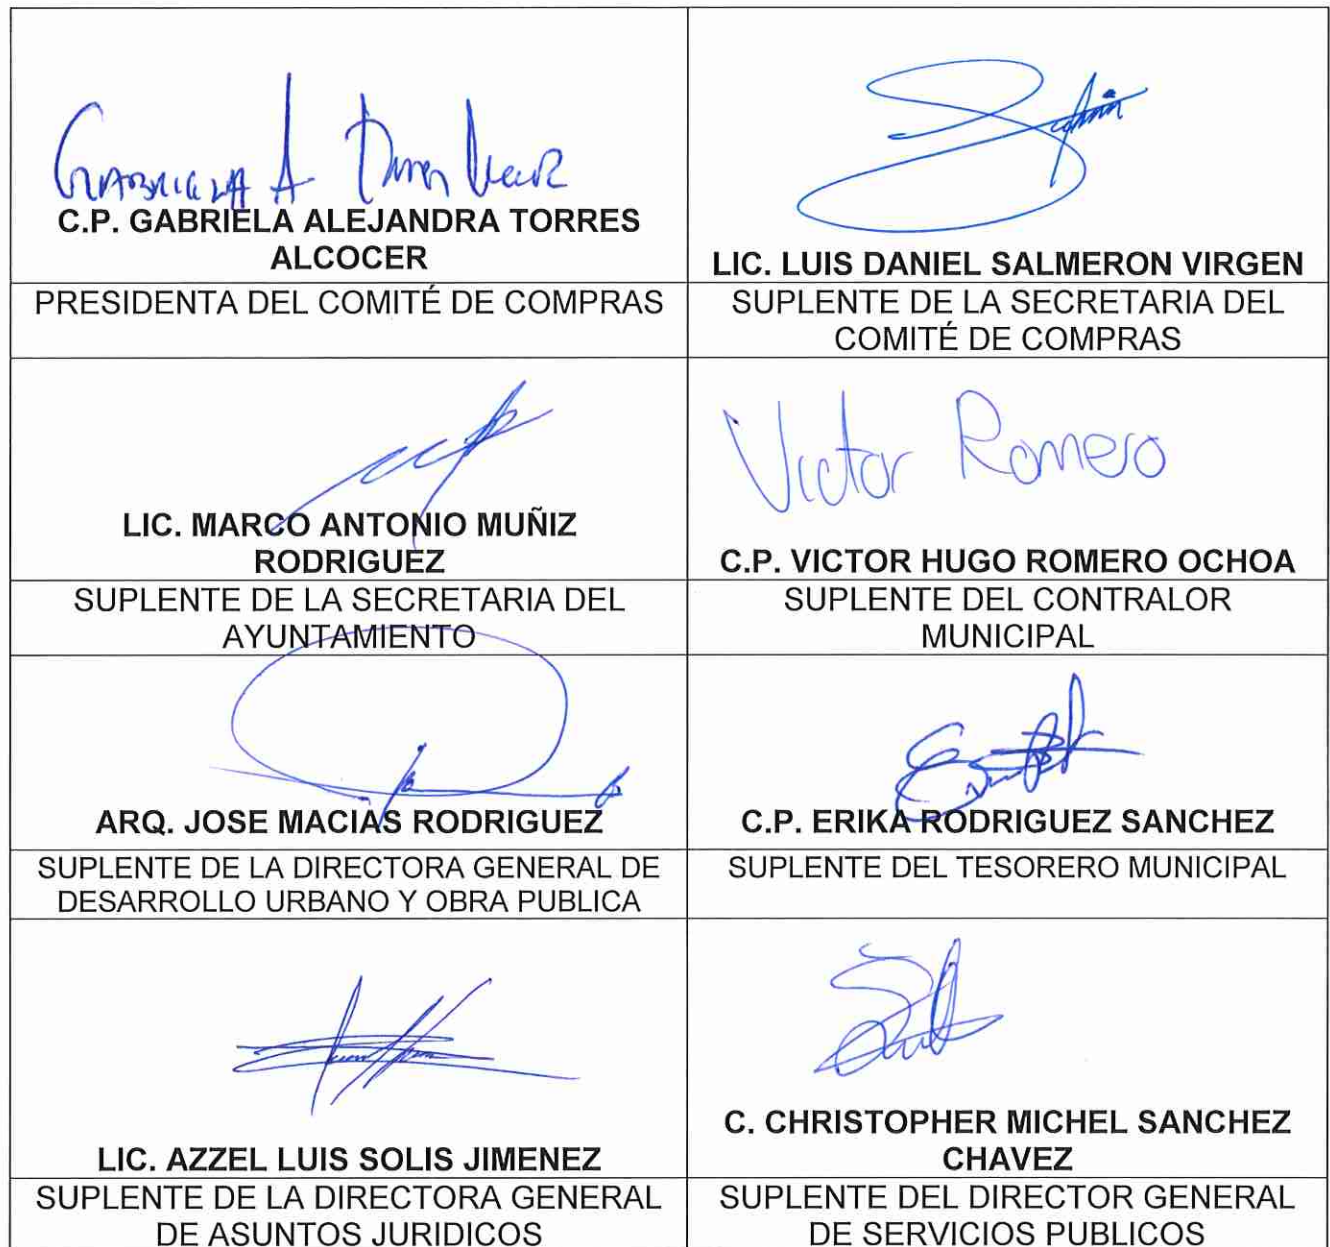 GABRIELA A
C.P. GABRIELA ALEJANDRA TORRES
ALCOCER
LIC. LUIS DANIEL SALMERON VIRGEN
PRESIDENTA DEL COMITÉ DE COMPRAS
SUPLENTE DE LA SECRETARIA DEL
COMITÉ DE COMPRAS
LIC. MARCO ANTONIO MUÑIZ
RODRIGUEZ
Victor Romero
C.P. VICTOR HUGO ROMERO OCHOA
SUPLENTE DE LA SECRETARIA DEL
AYUNTAMIENTO
SUPLENTE DEL CONTRALOR
MUNICIPAL
ARQ. JOSE MACIAS RODRIGUEZ
C.P. ERIKA RODRIGUEZ SANCHEZ
SUPLENTE DE LA DIRECTORA GENERAL DE
DESARROLLO URBANO Y OBRA PUBLICA
SUPLENTE DEL TESORERO MUNICIPAL
LIC. AZZEL LUIS SOLIS JIMENEZ
C. CHRISTOPHER MICHEL SANCHEZ
CHAVEZ
SUPLENTE DE LA DIRECTORA GENERAL
DE ASUNTOS JURIDICOS
SUPLENTE DEL DIRECTOR GENERAL
DE SERVICIOS PUBLICOS